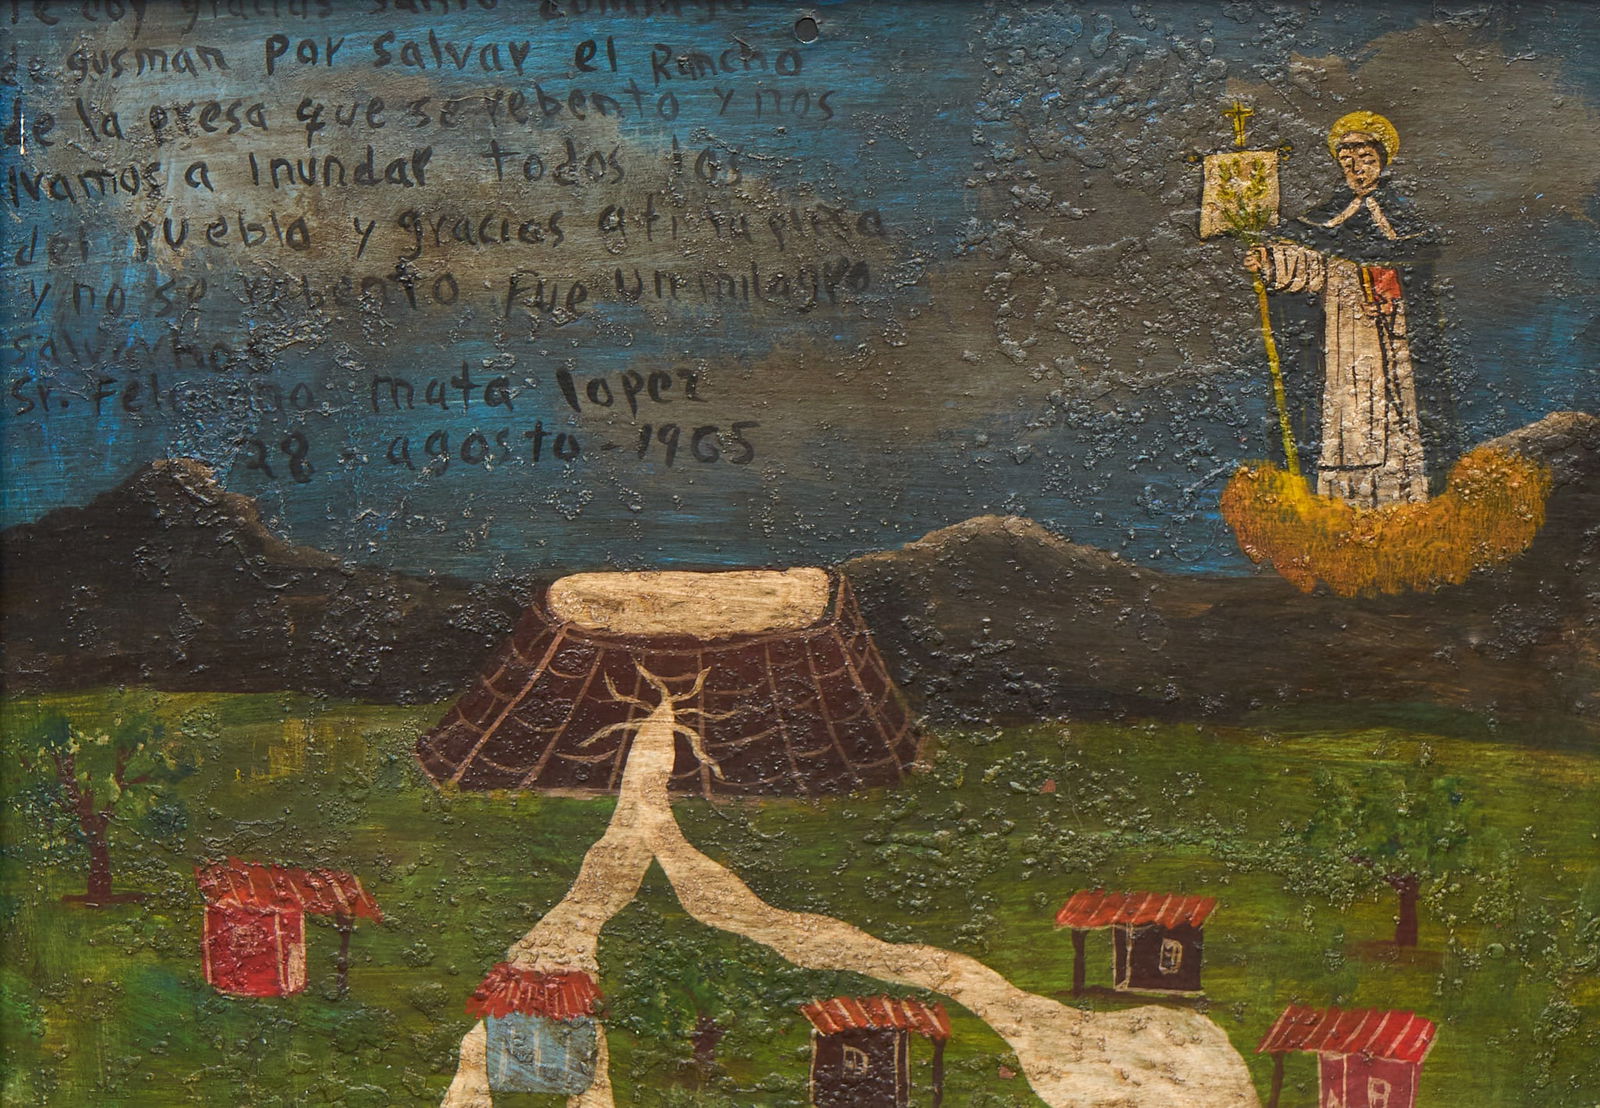 te doy gracias Santo Domingo
de gusman por salvar el Rancho
de la presa que se rebento y nos
Ivamos a inundar todos los
del pueblo y gracias a ti
y no se rebento Fue un milagro
salvarnos
Sr. mata lopez
28 - agosto - 1965